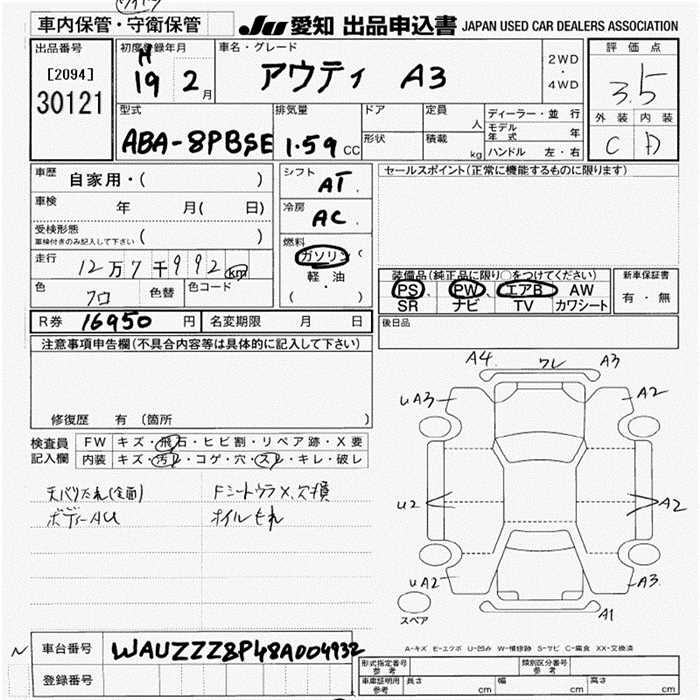 車内保管・守衛保管
JU 愛知 出品申込書 JAPAN USED CAR DEALERS ASSOCIATION
出品番号
[2094]
30121
初度登録年月
H
19 2月
車名・グレード
アウディ A3
2WD
・
4WD
評価点
3.5
外装 内装
C D
型式
ABA-8PBSE
排気量
1.59 CC
ドア
形状
定員
人
積載
kg
ディーラー・並行
モデル年式 年
ハンドル 左・右
車歴
自家用・( )
車検
年 月( 日)
受検形態
車検付きのみ記入して下さい ( )
走行
12万7千992km
色
クロ
色替
色コード
シフト
AT
冷房
AC
燃料
ガソリン
軽油
・
( )
セールスポイント(正常に機能するものに限ります)
装備品(純正品に限り○をつけてください)
PS PW エアB AW
SR ナビ TV カワシート
新車保証書
有・無
R券 16950 円
名変期限 月 日
後日品
注意事項申告欄(不具合内容等は具体的に記入して下さい)
修復歴 有 (箇所 )
検査員
記入欄
FW キズ・飛石・ヒビ割・リペア跡・X要
内装 キズ・汚レ・コゲ・穴・スレ・キレ・破レ
天バリたれ(全面)
Fシートウラ×、欠損
ボディーAU
オイルもれ
A4 ワレ A3
UA3 A2
U2 A2
UA2 A3
A1
スペア
N
車台番号 WAUZZZ8P48A004932
登録番号
A-キズ E-エクボ U-凹み W-補修跡 S-サビ C-腐食 XX-交換済
形式指定番号
参考
類別区分番号
参考
車庫証明用
参考
長さ cm
幅 cm
高さ cm